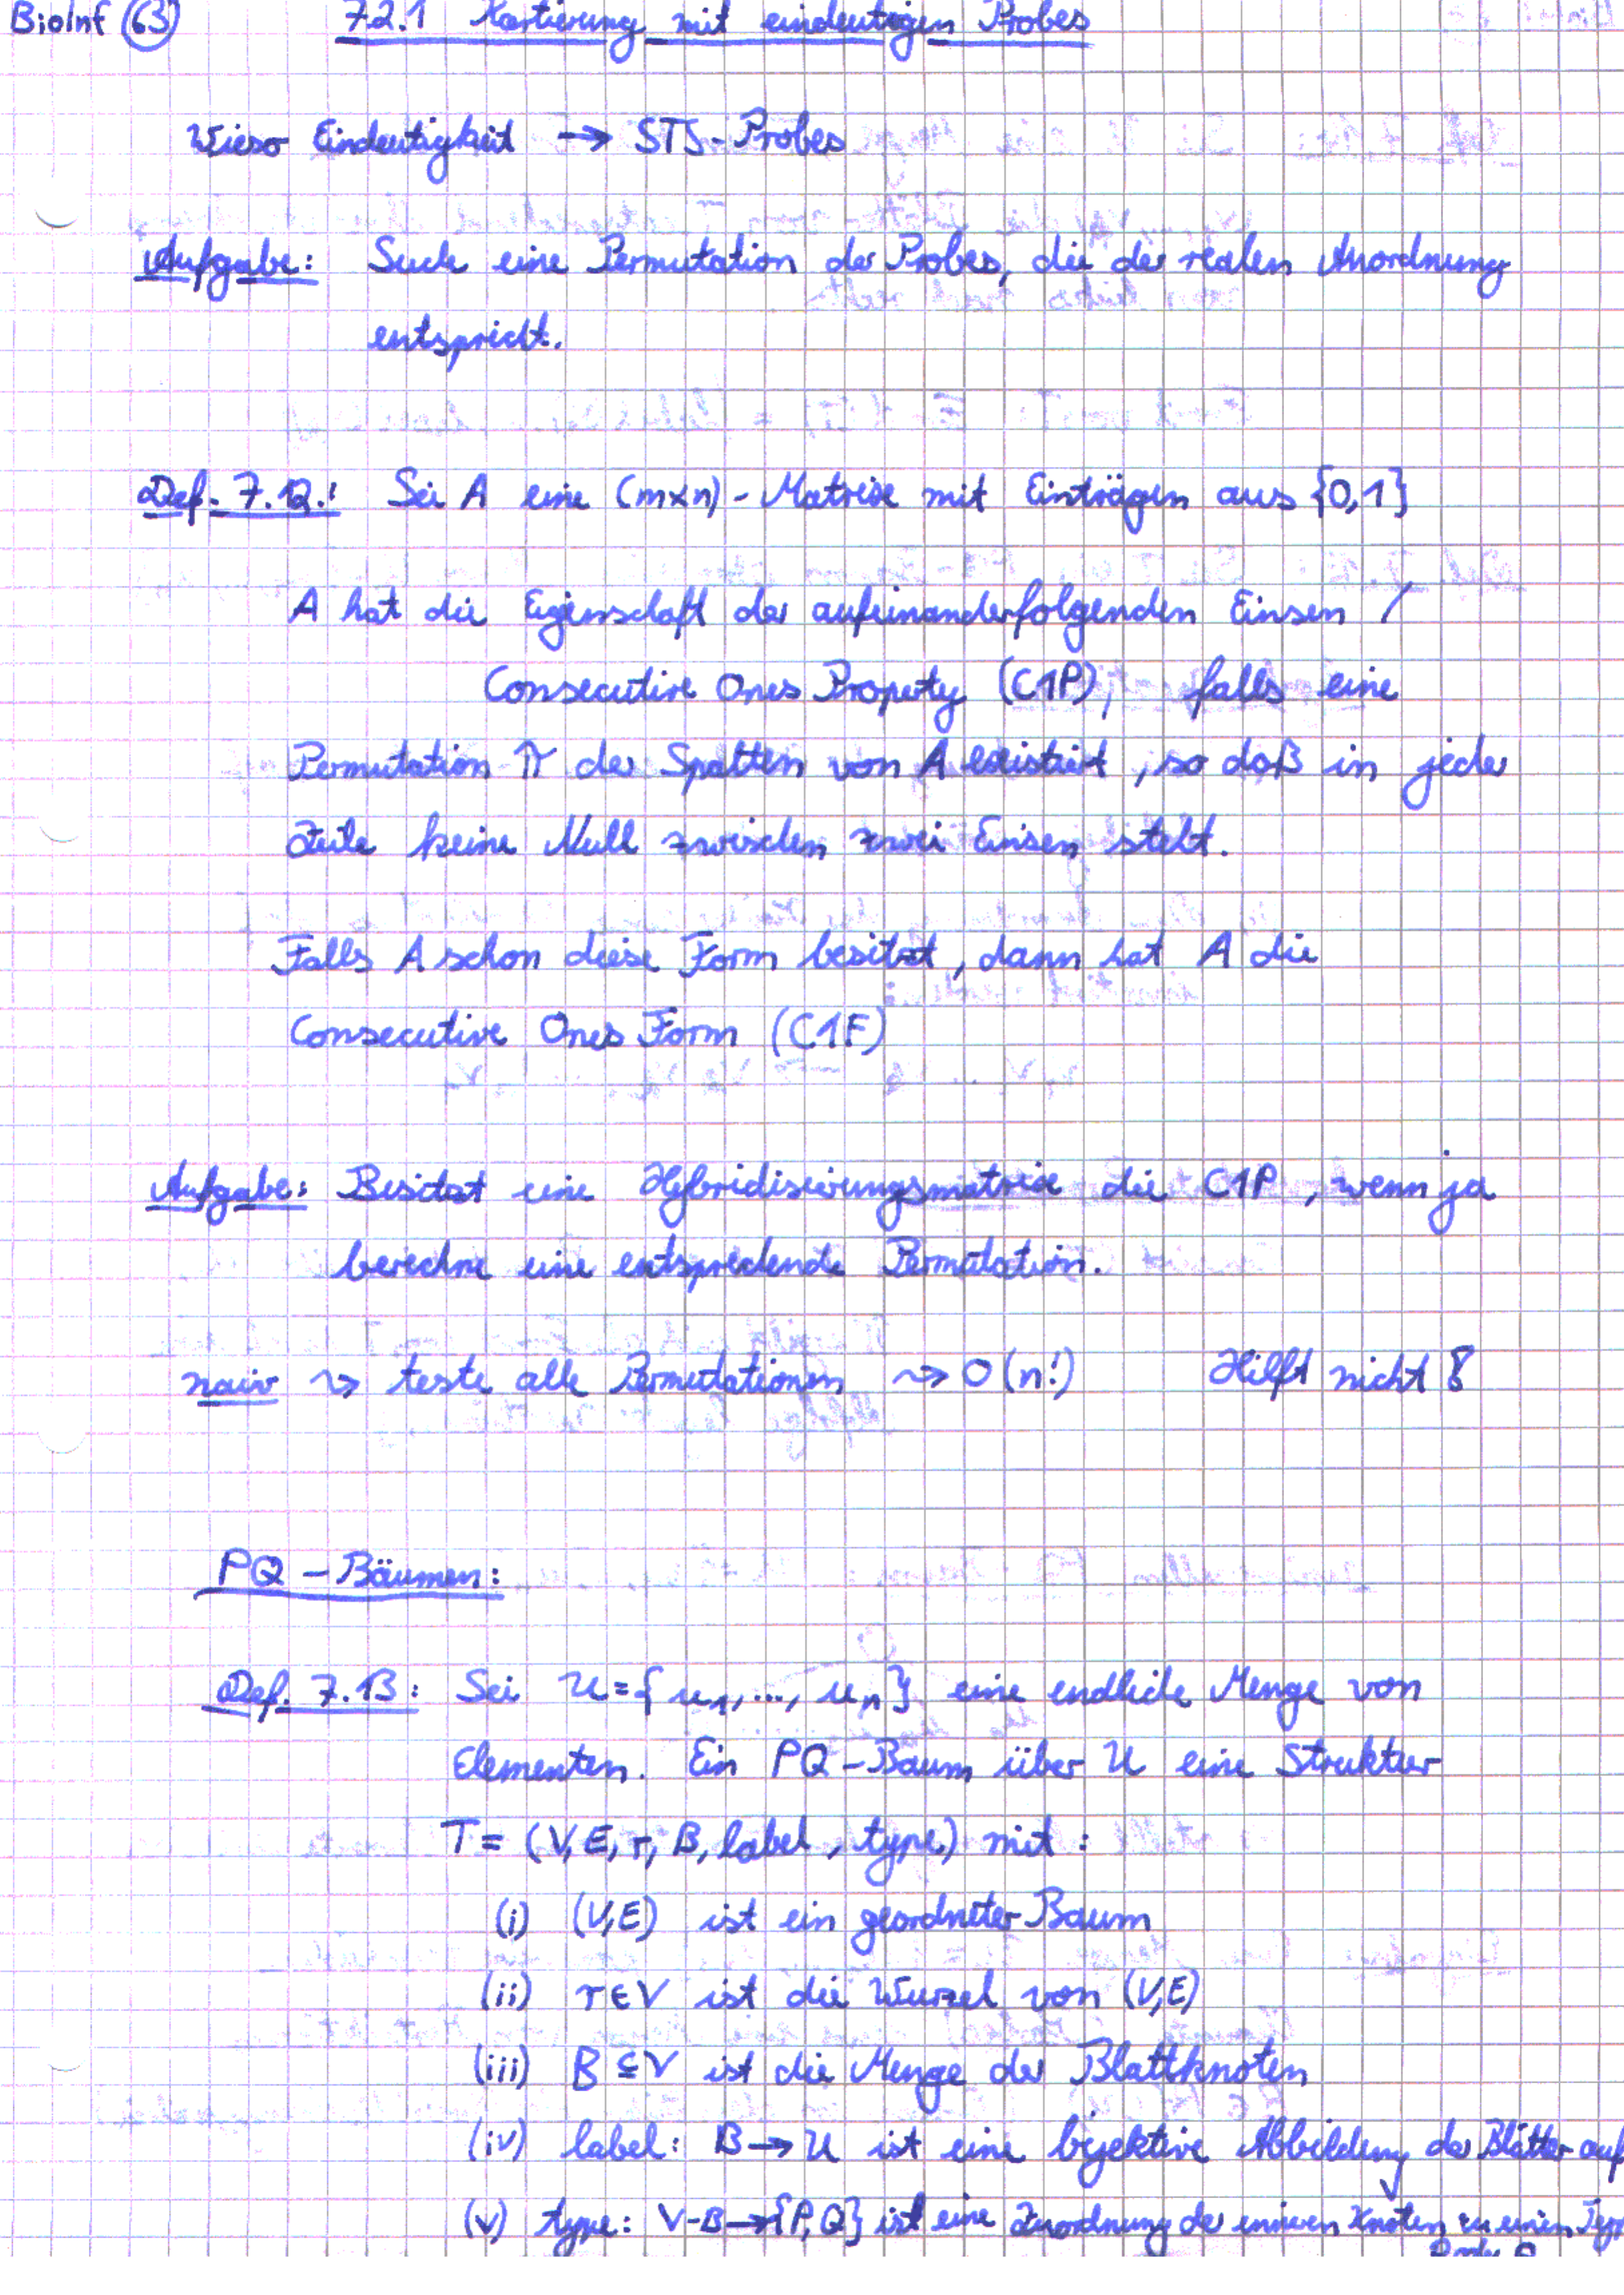 BioInf 63 7.2.1 Kartierung mit eindeutigen Probes
Wieso Eindeutigkeit → STS-Probes
Aufgabe: Suche eine Permutation der Probes, die der realen Anordnung
entspricht.
Def. 7.12.: Sei A eine (m×n)-Matrix mit Einträgen aus {0,1}
A hat die Eigenschaft der aufeinanderfolgenden Einsen /
Consecutive Ones Property (C1P), falls eine
Permutation π der Spalten von A existiert, so daß in jeder
Zeile keine Null zwischen zwei Einsen steht.
Falls A schon diese Form besitzt, dann hat A die
Consecutive Ones Form (C1F)
Aufgabe: Besitzt eine Hybridisierungsmatrix die C1P, wenn ja
berechne eine entsprechende Permutation.
naiv ⇝ teste alle Permutationen ⇝ O(n!) Hilft nicht !
PQ-Bäumen:
Def. 7.13: Sei U={u₁,..., uₙ} eine endliche Menge von
Elementen. Ein PQ-Baum über U eine Struktur
T = (V,E,r,B,label,type) mit:
(i) (V,E) ist ein geordneter Baum
(ii) r∈V ist die Wurzel von (V,E)
(iii) B⊆V ist die Menge der Blattknoten
(iv) label: B→U ist eine bijektive Abbildung der Blätter auf
(v) type: V-B→{P,Q} ist eine Zuordnung der inneren Knoten zu einem Typ